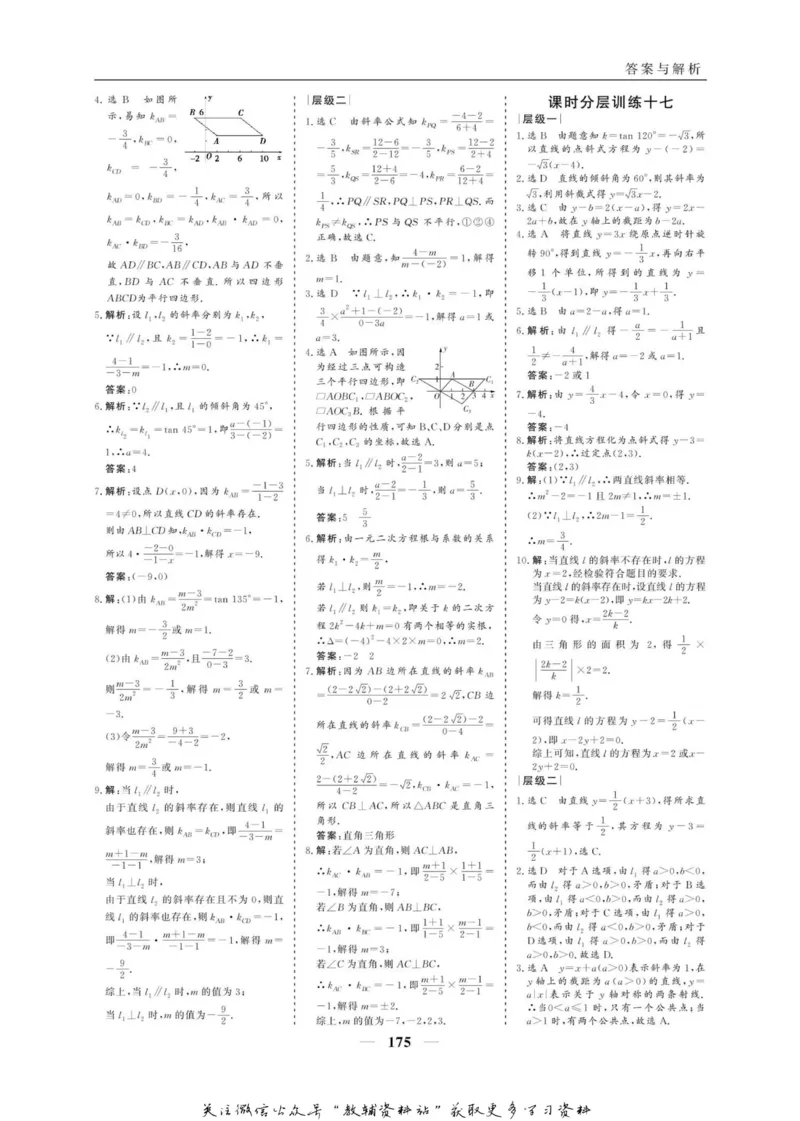 答案与解析
4. 选 B 如图所
示,易知 k_AB =
-3/4, k_BC =0,
k_CD = -3/4,
k_AD =0, k_BD = -1/4, k_AC = 3/4, 所以
k_AB = k_CD, k_BC = k_AD, k_AB · k_AD =0,
k_AC · k_BD = -3/16,
故 AD∥BC, AB∥CD, AB 与 AD 不垂
直, BD 与 AC 不垂直. 所以四边形
ABCD为平行四边形.
y
B 6 C
A D
-2 O 2 6 10 x
5. 解析:设 l₁, l₂ 的斜率分别为 k₁, k₂,
∵l₁∥l₂, 且 k₂ = (1-2)/(1-0) = -1, ∴k₁ =
(4-1)/(-3-m) = -1, ∴m=0.
答案:0
6. 解析:∵l₂∥l₁, 且 l₁ 的倾斜角为 45°,
∴k_l₂ = k_l₁ = tan 45° = 1, 即 (a-(-1))/(3-(-2)) =
1, ∴a=4.
答案:4
7. 解析:设点 D(x,0), 因为 k_AB = (-1-3)/(1-2)
=4≠0, 所以直线 CD 的斜率存在.
则由 AB⊥CD 知, k_AB · k_CD = -1,
所以 4 · (-2-0)/(-1-x) = -1, 解得 x=-9.
答案:(-9,0)
8. 解:(1)由 k_AB = (m-3)/(2m²) = tan 135° = -1,
解得 m = -3/2 或 m=1.
(2)由 k_AB = (m-3)/(2m²), 且 (-7-2)/(0-3) = 3.
则 (m-3)/(2m²) = -1/3, 解得 m = 3/2 或 m =
-3.
(3)令 (m-3)/(2m²) = (9+3)/(-4-2) = -2,
解得 m = 3/4 或 m=-1.
9. 解:当 l₁∥l₂ 时,
由于直线 l₂ 的斜率存在, 则直线 l₁ 的
斜率也存在, 则 k_AB = k_CD, 即 (4-1)/(-3-m) =
(m+1-m)/(-1-1), 解得 m=3;
当 l₁⊥l₂ 时,
由于直线 l₂ 的斜率存在且不为 0, 则直
线 l₁ 的斜率也存在, 则 k_AB · k_CD = -1,
即 (4-1)/(-3-m) · (m+1-m)/(-1-1) = -1, 解得 m =
-9/2.
综上, 当 l₁∥l₂ 时, m 的值为 3;
当 l₁⊥l₂ 时, m 的值为 -9/2.
|层级二|
1. 选 C 由斜率公式知 k_PQ = (-4-2)/(6+4) =
-3/5, k_SR = (12-6)/(2-12) = -3/5, k_PS = (12-2)/(2+4)
= 5/3, k_QS = (12+4)/(2-6) = -4, k_PR = (6-2)/(12+4) =
1/4, ∴PQ∥SR, PQ⊥PS, PR⊥QS. 而
k_PS ≠ k_QS, ∴PS 与 QS 不平行, ①②④
正确, 故选 C.
2. 选 B 由题意, 知 (4-m)/(m-(-2)) = 1, 解得
m=1.
3. 选 D ∵l₁⊥l₂, ∴k₁ · k₂ = -1, 即
3/4 × (a²+1-(-2))/(0-3a) = -1, 解得 a=1 或
a=3.
4. 选 A 如图所示, 因
为经过三点可构造
三个平行四边形, 即
□AOBC₁, □ABOC₂,
□AOC₃B. 根据平
行四边形的性质, 可知 B、C、D 分别是点
C₁, C₂, C₃ 的坐标, 故选 A.
y
2
C₂ 1 A C₁
B
O 1 2 3 4 x
C₃
5. 解析:当 l₁∥l₂ 时, (a-2)/(2-1) = 3, 则 a=5;
当 l₁⊥l₂ 时, (a-2)/(2-1) = -1/3, 则 a = 5/3.
答案:5 5/3
6. 解析:由一元二次方程根与系数的关系
得 k₁ · k₂ = m/2,
若 l₁⊥l₂, 则 m/2 = -1, ∴m=-2.
若 l₁∥l₂ 则 k₁=k₂, 即关于 k 的二次方
程 2k²-4k+m=0 有两个相等的实根,
∴Δ=(-4)²-4×2×m=0, ∴m=2.
答案:-2 2
7. 解析:因为 AB 边所在直线的斜率 k_AB
= ((2-2√2)-(2+2√2))/(0-2) = 2√2, CB 边
所在直线的斜率 k_CB = ((2-2√2)-2)/(0-4) =
√2/2, AC 边所在直线的斜率 k_AC =
(2-(2+2√2))/(4-2) = -√2, k_CB · k_AC = -1,
所以 CB⊥AC, 所以△ABC 是直角三
角形.
答案:直角三角形
8. 解:若∠A 为直角, 则 AC⊥AB,
∴k_AC · k_AB = -1, 即 (m+1)/(2-5) × (1+1)/(1-5) =
-1, 解得 m=-7;
若∠B 为直角, 则 AB⊥BC,
∴k_AB · k_BC = -1, 即 (1+1)/(1-5) × (m-1)/(2-1) =
-1, 解得 m=3;
若∠C 为直角, 则 AC⊥BC,
∴k_AC · k_BC = -1, 即 (m+1)/(2-5) × (m-1)/(2-1) =
-1, 解得 m=±2.
综上, m 的值为-7, -2, 2, 3.
课时分层训练十七
|层级一|
1. 选 B 由题意知 k=tan 120°=-√3, 所
以直线的点斜式方程为 y-(-2)=
-√3(x-4).
2. 选 D 直线的倾斜角为 60°, 则其斜率为
√3, 利用斜截式得 y=√3x-2.
3. 选 C 由 y-b=2(x-a), 得 y=2x-
2a+b, 故在 y 轴上的截距为 b-2a.
4. 选 A 将直线 y=3x 绕原点逆时针旋
转 90°, 得到直线 y=-1/3 x, 再向右平
移 1 个单位, 所得到的直线为 y =
-1/3(x-1), 即 y=-1/3 x+1/3.
5. 选 B 由 a=2-a, 得 a=1.
6. 解析:由 l₁∥l₂ 得 -a/2 = -1/(a+1) 且
1/2 ≠ -4/(a+1), 解得 a=-2 或 a=1.
答案:-2 或 1
7. 解析:由 y=4/3 x-4, 令 x=0, 得 y=
-4.
答案:-4
8. 解析:将直线方程化为点斜式得 y-3=
k(x-2), ∴过定点(2,3).
答案:(2,3)
9. 解:(1)∵l₁∥l₂, ∴两直线斜率相等.
∴m²-2=-1 且 2m≠1, ∴m=±1.
(2)∵l₁⊥l₂, ∴2m-1=1/2.
∴m=3/4.
10. 解:当直线 l 的斜率不存在时, l 的方程
为 x=2, 经检验符合题目的要求.
当直线 l 的斜率存在时, 设直线 l 的方程
为 y-2=k(x-2), 即 y=kx-2k+2.
令 y=0 得, x=(2k-2)/k.
由三角形的面积为 2, 得 1/2 ×
|(2k-2)/k| ×2=2.
解得 k=1/2.
可得直线 l 的方程为 y-2=1/2(x-
2), 即 x-2y+2=0.
综上可知, 直线 l 的方程为 x=2 或 x-
2y+2=0.
|层级二|
1. 选 C 由直线 y=1/2(x+3), 得所求直
线的斜率等于 1/2, 其方程为 y-3=
1/2(x+1), 选 C.
2. 选 D 对于 A 选项, 由 l₁ 得 a>0, b<0,
而由 l₂ 得 a>0, b>0, 矛盾; 对于 B 选
项, 由 l₁ 得 a<0, b>0, 而由 l₂ 得 a>0,
b>0, 矛盾; 对于 C 选项, 由 l₁ 得 a>0,
b<0, 而由 l₂ 得 a<0, b>0, 矛盾; 对于
D 选项, 由 l₁ 得 a>0, b>0, 而由 l₂ 得
a>0, b>0. 故选 D.
3. 选 A y=x+a(a>0)表示斜率为 1, 在
y 轴上的截距为 a(a>0)的直线, y=
a|x|表示关于 y 轴对称的两条射线.
∴当 0<a≤1 时, 只有一个公共点; 当
a>1 时, 有两个公共点, 故选 A.
— 175 —
关注微信公众号“教辅资料站”获取更多学习资料